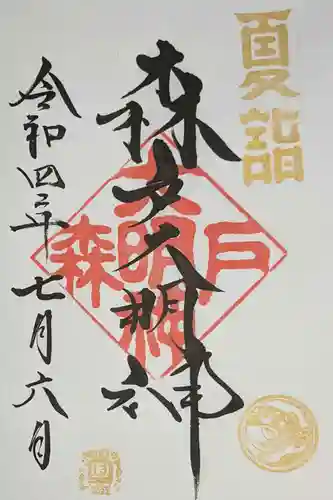 夏詣
森戸大明神
令和四年七月六日
森戸大明神